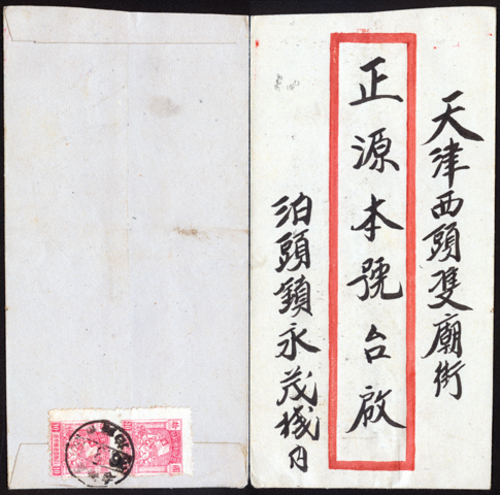 天津西頭雙廟街
正源本號台啟
泊頭鎮永茂棧日